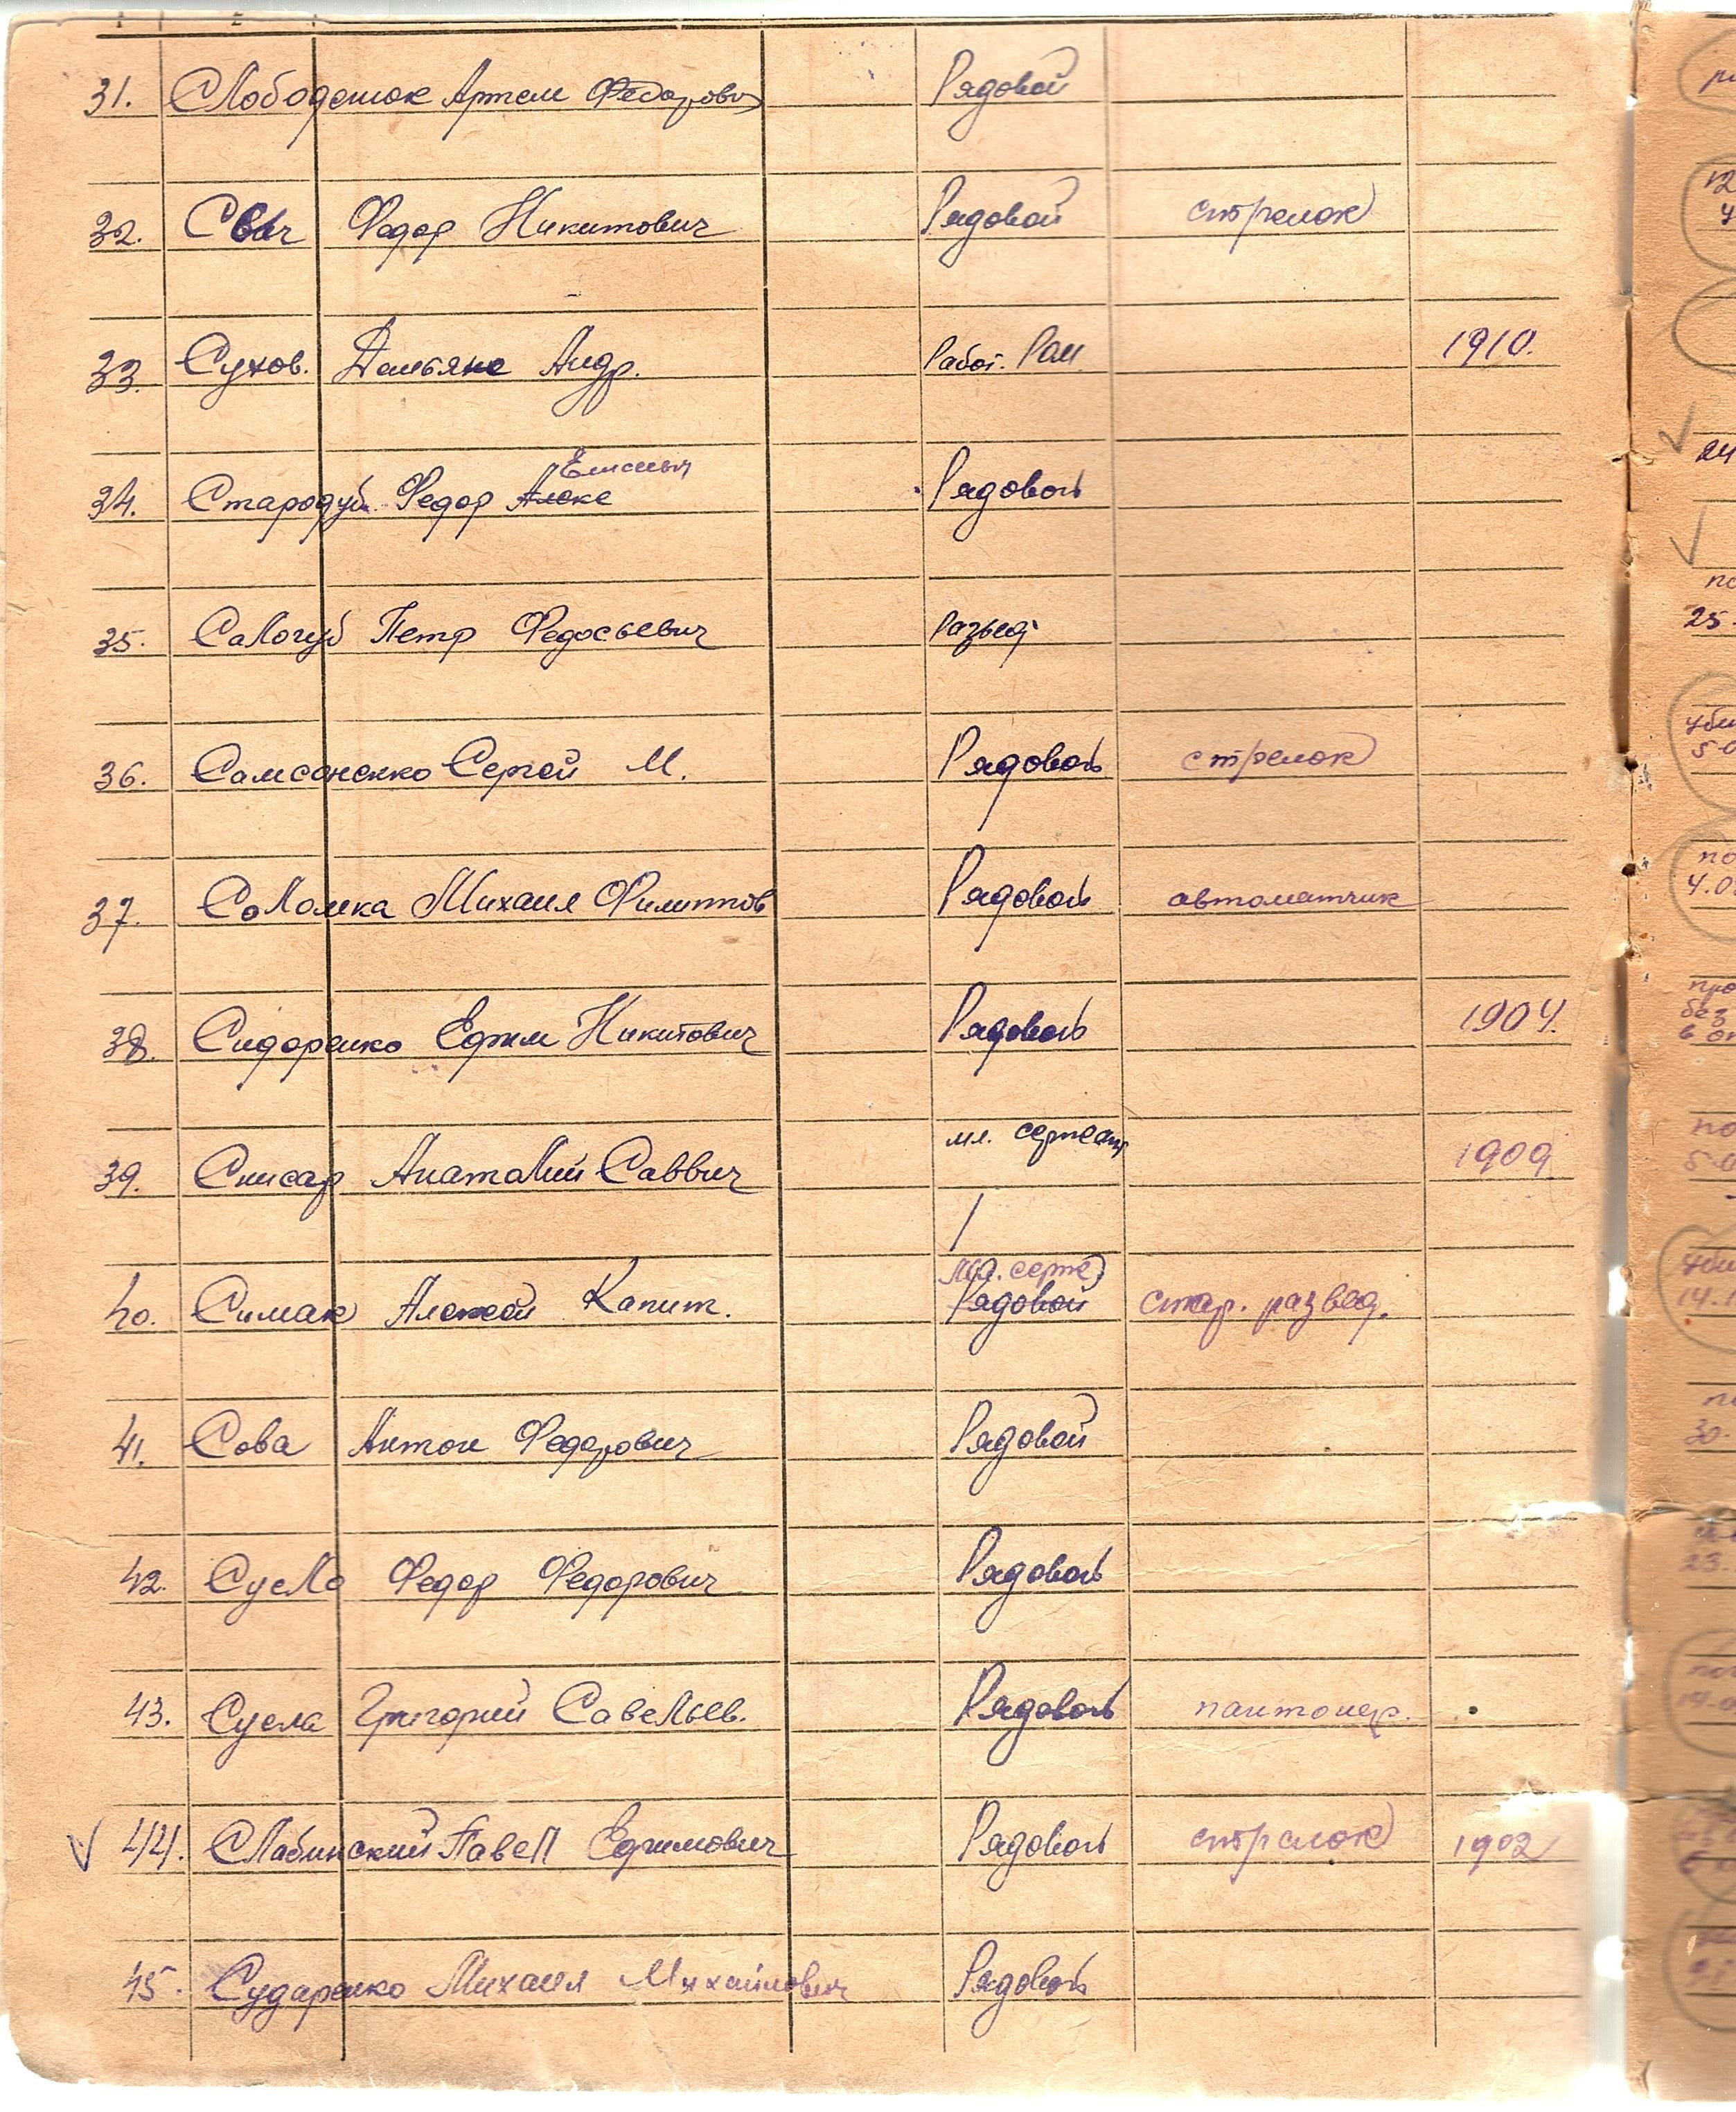 1 2
31. Слободенюк Артем Федорович Рядовой
32. Свич Федор Никитович Рядовой стрелок
33. Сухов. Демьян Андр. Работ. Рай. 1910.
Елисеевич
34. Стародуб Федор Алекс Рядовой
35. Сологуб Петр Федосьевич Развед.
36. Самсоненко Сергей М. Рядовой стрелок
37. Соломка Михаил Филиппов Рядовой автоматчик
38. Сидоренко Ефим Никитович Рядовой 1904.
39. Снисар Анатолий Саввич мл. сержант 1909
мл. серж
40. Симак Алексей Капит. Рядовой стар. развед.
41. Сова Антон Федорович Рядовой
42. Сусло Федор Федорович Рядовой
43. Сусла Григорий Савельев. Рядовой пантонер.
44. Слабинский Павел Ефимович Рядовой стрелок 1902
45. Сударенко Михаил Михайлович Рядовой